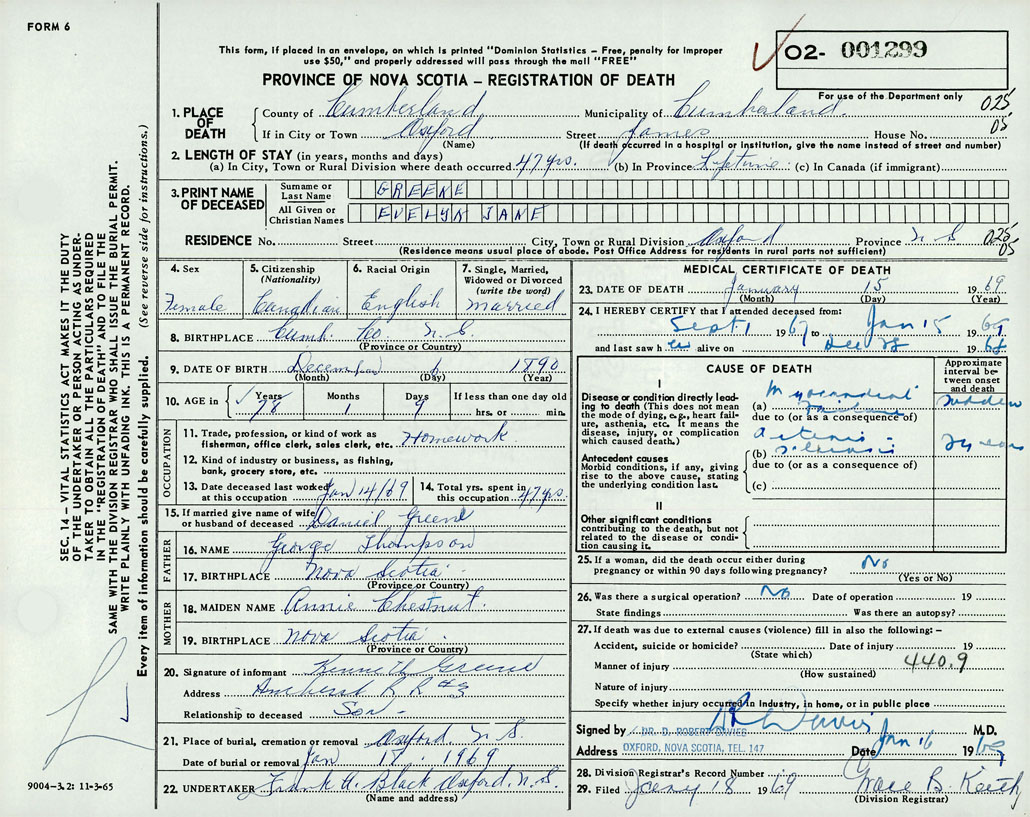 FORM 6
This form, if placed in an envelope, on which is printed "Dominion Statistics – Free, penalty for improper
use $50," and properly addressed will pass through the mail "FREE"
O2- 001299
For use of the Department only
PROVINCE OF NOVA SCOTIA – REGISTRATION OF DEATH
025
05
1. PLACE OF DEATH
County of Cumberland Municipality of Cumberland.
If in City or Town Oxford Street James House No.
(Name) (If death occurred in a hospital or institution, give the name instead of street and number)
2. LENGTH OF STAY (in years, months and days)
(a) In City, Town or Rural Division where death occurred 47 yrs. (b) In Province Lifetime (c) In Canada (if immigrant)
3. PRINT NAME OF DECEASED
Surname or Last Name GREENE
All Given or Christian Names EVELYN JANE
RESIDENCE No. Street City, Town or Rural Division Oxford Province N S 025 05
(Residence means usual place of abode. Post Office Address for residents in rural parts not sufficient)
4. Sex Female
5. Citizenship (Nationality) Canadian
6. Racial Origin English
7. Single, Married, Widowed or Divorced (write the word) Married
8. BIRTHPLACE Cumb. Co. N. S.
(Province or Country)
9. DATE OF BIRTH December 6 1890
(Month) (Day) (Year)
10. AGE in Years 78 Months 1 Days 9 If less than one day old hrs. or min.
OCCUPATION
11. Trade, profession, or kind of work as fisherman, office clerk, sales clerk, etc. Homework
12. Kind of industry or business, as fishing, bank, grocery store, etc.
13. Date deceased last worked at this occupation Jan 14/69
14. Total yrs. spent in this occupation 47 yrs.
15. If married give name of wife or husband of deceased Daniel Greene
FATHER
16. NAME George Thompson
17. BIRTHPLACE Nova Scotia
(Province or Country)
MOTHER
18. MAIDEN NAME Annie Chestnut.
19. BIRTHPLACE Nova Scotia.
(Province or Country)
20. Signature of informant Kenneth Greene
Address Amherst R R #3
Relationship to deceased Son -
21. Place of burial, cremation or removal Oxford N. S.
Date of burial or removal Jan 17. 1969
22. UNDERTAKER Frank A. Black Oxford, N. S.
(Name and address)
MEDICAL CERTIFICATE OF DEATH
23. DATE OF DEATH January 15 1969
(Month) (Day) (Year)
24. I HEREBY CERTIFY that I attended deceased from:
Sept 1 1967 to Jan 15 1969
and last saw her alive on Dec 28 1968
CAUSE OF DEATH
Approximate interval between onset and death
I
Disease or condition directly leading to death (This does not mean the mode of dying, e.g., heart failure, asthenia, etc. It means the disease, injury, or complication which caused death.)
(a) Myocardial sudden
due to (or as a consequence of)
Antecedent causes
Morbid conditions, if any, giving rise to the above cause, stating the underlying condition last.
(b) arterio-sclerosis
due to (or as a consequence of)
(c)
II
Other significant conditions contributing to the death, but not related to the disease or condition causing it.
25. If a woman, did the death occur either during pregnancy or within 90 days following pregnancy? No
(Yes or No)
26. Was there a surgical operation? No Date of operation 19
State findings Was there an autopsy?
27. If death was due to external causes (violence) fill in also the following: –
Accident, suicide or homicide? Date of injury 19
(State which)
Manner of injury 440.9
(How sustained)
Nature of injury
Specify whether injury occurred in industry, in home, or in public place
Signed by D R Davies M.D.
DR. D. ROBERT DAVIES
Address OXFORD, NOVA SCOTIA, TEL. 147 Date Jan 16 1969
28. Division Registrar's Record Number 1
29. Filed Jany 18 1969 Grace B. Keith
(Division Registrar)
SEC. 14 – VITAL STATISTICS ACT MAKES IT THE DUTY
OF THE UNDERTAKER OR PERSON ACTING AS UNDER-
TAKER TO OBTAIN ALL THE PARTICULARS REQUIRED
IN THE "REGISTRATION OF DEATH" AND TO FILE THE
SAME WITH THE DIVISION REGISTRAR WHO SHALL ISSUE THE BURIAL PERMIT.
WRITE PLAINLY WITH UNFADING INK. THIS IS A PERMANENT RECORD.
Every item of information should be carefully supplied. (See reverse side for instructions.)
9004-3.2: 11-3-65